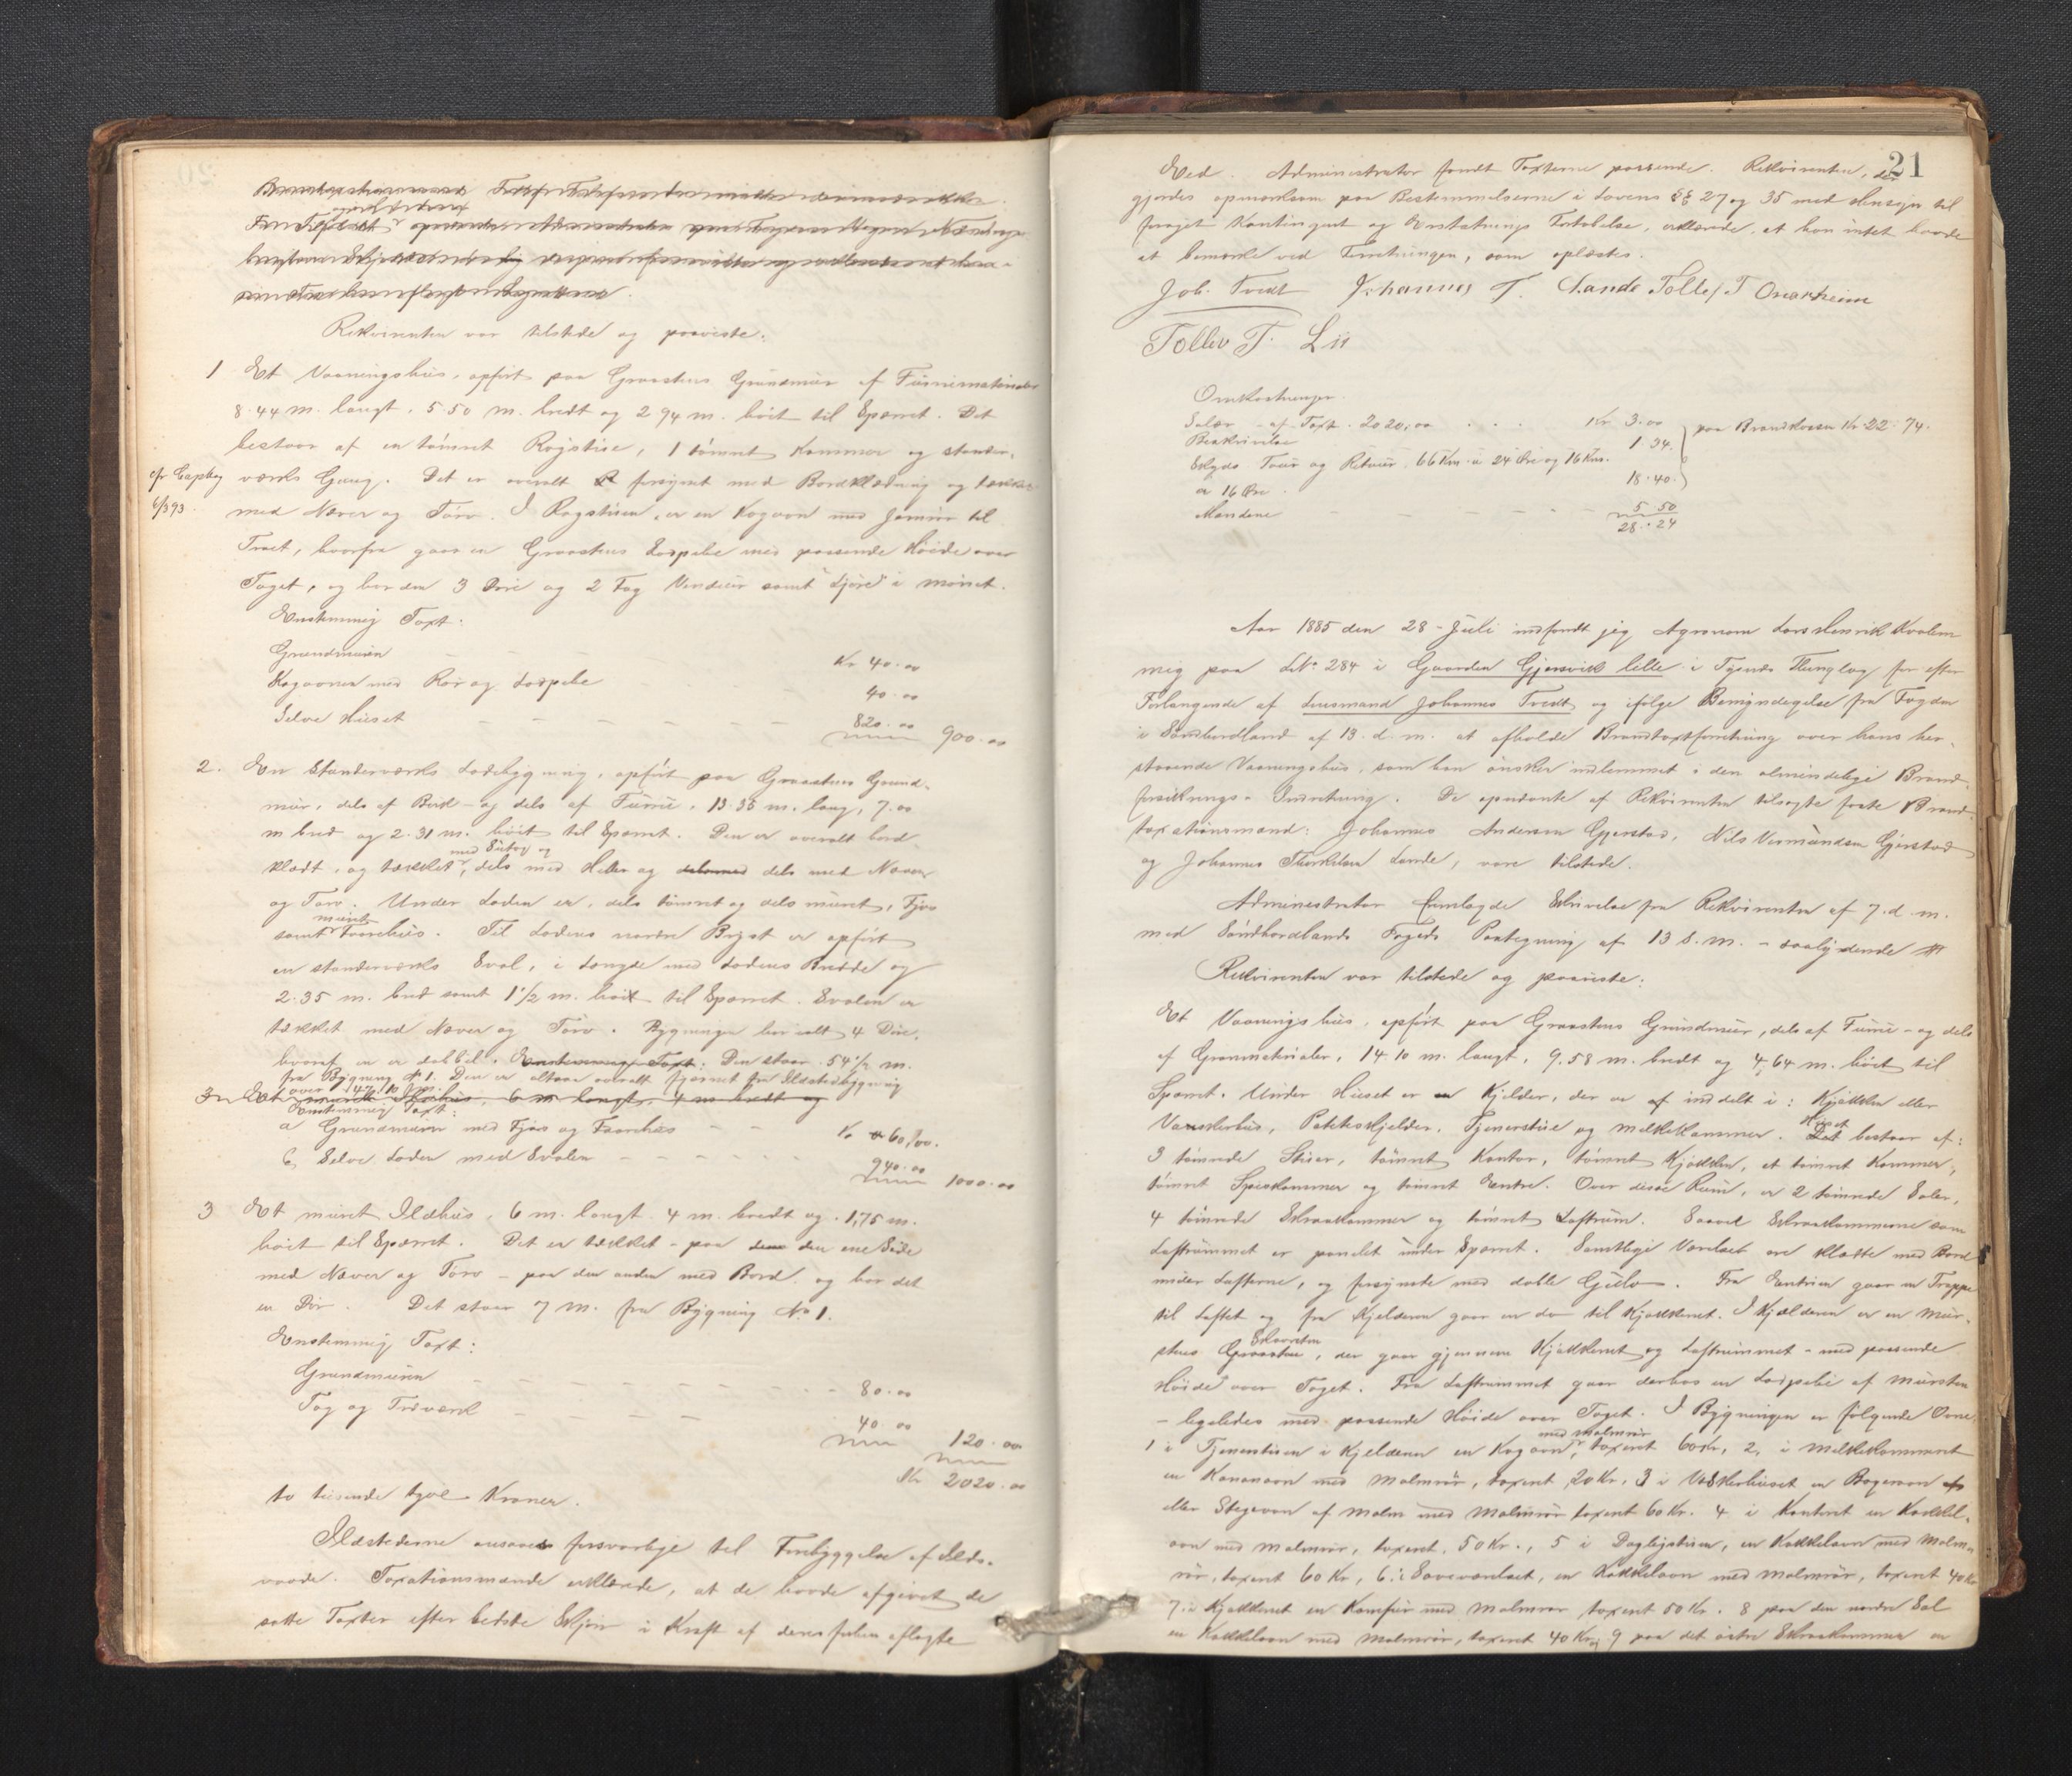 Rekvirenten var tilstede og paaviste:
1 Et Vaaningshus, opført paa Graastens Grundmur af Furumaterialer
8.44 m. langt, 5.50 m. bredt og 2.94 m. høit til Sparret. Det
bestaar af en tømret Røgstue, 1 tømret Kammer og stander-
værks Gang. Det er overalt forsynet med Bordklædning og tækket
cfr. Captbog
6/393.
med Næver og Torv. I Røgstuen er en Kogovn med Jernrør til
Træet, hvorfra gaar en Graastens Lodpibe med passende Høide over
Taget, og har den 3 Døre og 2 Fag Vinduer samt "Ljore" i Mønet.
Enstemmig Taxt:
Grundmuren Kr. 40.00
Kogovnen med Rør og Lodpibe 40.00
Selve Huset 820.00 900.00
2. En Standerværks Ladebygning, opført paa Graastens Grund-
mur, dels af Birk- og dels af Furru, 13.35 m. lang, 7.00
m. bred og 2.31 m. høit til Sparret. Den er overalt bord-
klædt, og tækket, dels med Heller og delsmed dels med Næver
og Torv. Under Laden er, dels tømret og dels muret, Fjøs
samt muret Faarehus. Til Ladens nordre Bryst er opført
en standerværks Sval, i Længde med Ladens Bredde og
2.35 m. bred samt 1 1/2 m. høit til Sparret. Svalen er
tækket med Næver og Torv. Bygningen har ialt 4 Døre,
hvoraf en er dobbel. Enstemmig Taxt: Den staar 54 1/2 m.
fra Bygning No 1. Den er altsaa overalt fjernet fra Ildstedsbygning
3 Et muret Ildhus, 6 m. langt, 4 m. bredt og
Enstemmig Taxt:
a Grundmuren med Fjøs og Faarehus Kr 60.00.
b, Selve Laden med Svalen 940.00 1000.00
3 Et muret Ildhus, 6 m. langt, 4 m. bredt og 1,75 m.
høit til Sparret. Det er tækket - paa den ene Side
med Næver og Torv - paa den anden med Bord, og har det
en Dør. Det staar 7 m. fra Bygning No 1.
Enstemmig Taxt:
Grundmuren 80.00
Tag og Træværk 40.00 120.00
Kr 2020.00
to tusende tyve Kroner.
Ildstederne ansaaes forsvarlige til Forebyggelse af Ilds-
vaade. Taxationsmændene erklærede, at de havde afgivet de
satte Taxter efter bedste Skjøn i Kraft af deres forhen aflagte
21
Eed. Administrator fandt Taxterne passende. Rekvirenten, der
gjordes opmærksom paa Bestemmelserne i Lovens §§ 27 og 35 med Hensyn til
forøget Kontingent og Erstatnings Fortabelse, erklærede, at han intet havde
at bemærke ved Forretningen, som oplæstes.
Joh. Tvedt Johannes T. Lande Tollef T Onarheim
Tollev T. Lii
Omkostninger.
Salær af Taxt. 2020.00 Kr 3.00
Beskrivelse 1 34. paa Brandkassen Kr. 22.74.
Skyds Tour og Retour 66 Km. a 24 Øre og 16 Km.
a 16 Øre. 18.40.
Mændene 5.50
28.24
Aar 1885 den 28 Juli indfandt jeg Agronom Lars Henrik Kvalem
mig paa L.No 284 i Gaarden Gjersvik lille i Tysnæs Thinglag for efter
Forlangende af Lensmand Johannes Tvedt og ifølge Bemyndigelse fra Fogden
i Søndhordland af 13. d. m. at afholde Brandtaxtforretning over hans her-
staaende Vaaningshus, som han ønsker indlemmet i den almindelige Brand-
forsikrings-Indretning. De opnævnte af Rekvirenten tilsagte faste Brand-
taxationsmænd: Johannes Andersen Gjerstad, Nils Vermundsen Gjerstad
og Johannes Thorkelsen Lande, vare tilstede.
Administrator fremlagde Skrivelse fra Rekvirenten af 7. d. m.
med Søndhordlands Fogeds Paategning af 13 s. m. - saalydende
Rekvirenten var tilstede og paaviste:
Et Vaaningshus, opført paa Graastens Grundmur, dels af Furru- og dels
af Granmaterialer, 14.10 m. langt, 9.58 m. bredt og 4.64 m. høit til
Sparret. Under Huset er en Kjelder, der er inddelt i: Kjøkken eller
Vaskerhus, Potetkjelder, Tjenerstue og Melkekammer. Huset bestaar af:
3 tømrede Stuer, tømret Kontor, tømret Kjøkken, et tømret Kammer,
tømret Spisekammer og tømret Entre. Over disse Rum, er 2 tømrede Saler,
4 tømrede Skraakammer og tømret Loftrum. Saavel Skraakammerne som
Loftrummet er panelet under Sparret. Samtlige Værelser ere klædte med Bord
under Lofterne, og forsynede med doble Gulv. Fra Entreen gaar en Trappe
til Loftet og fra Kjelderen gaar en do til Kjøkkenet. I Kjælderen er en Mur-
stens Skorsten, der gaar gjennem Kjøkkenet og Loftrummet - med passende
Høide over Taget. Fra Loftrummet gaar derhos en Lodpibe af Mursten
- ligeledes med passende Høide over Taget. I Bygningen er følgende Ovne
1 i Tjenerstuen i Kjelderen en Kogovn med Malmrør, taxeret 60 Kr, 2, i Melkekammeret
en Kanonovn med Malmrør, taxeret 20 Kr. 3 i Vaskerhuset en Bagerovn
eller Stegeovn af Malm med Malmrør taxeret 60 Kr. 4 i Kontoret en Kakkel-
ovn med Malmrør, taxeret 50 Kr., 5 i Dagligstuen, en Kakkelovn med Malm-
rør, taxeret 60 Kr, 6. i Soveværelset, en Kakkelovn med Malmrør, taxeret 40 Kr
7. i Kjøkkenet en Komfur med Malmrør taxeret 50 Kr. 8 paa den nordre Sal
en Kakkelovn med Malmrør, taxeret 40 Kr, 9 paa det østre Skraakammer en